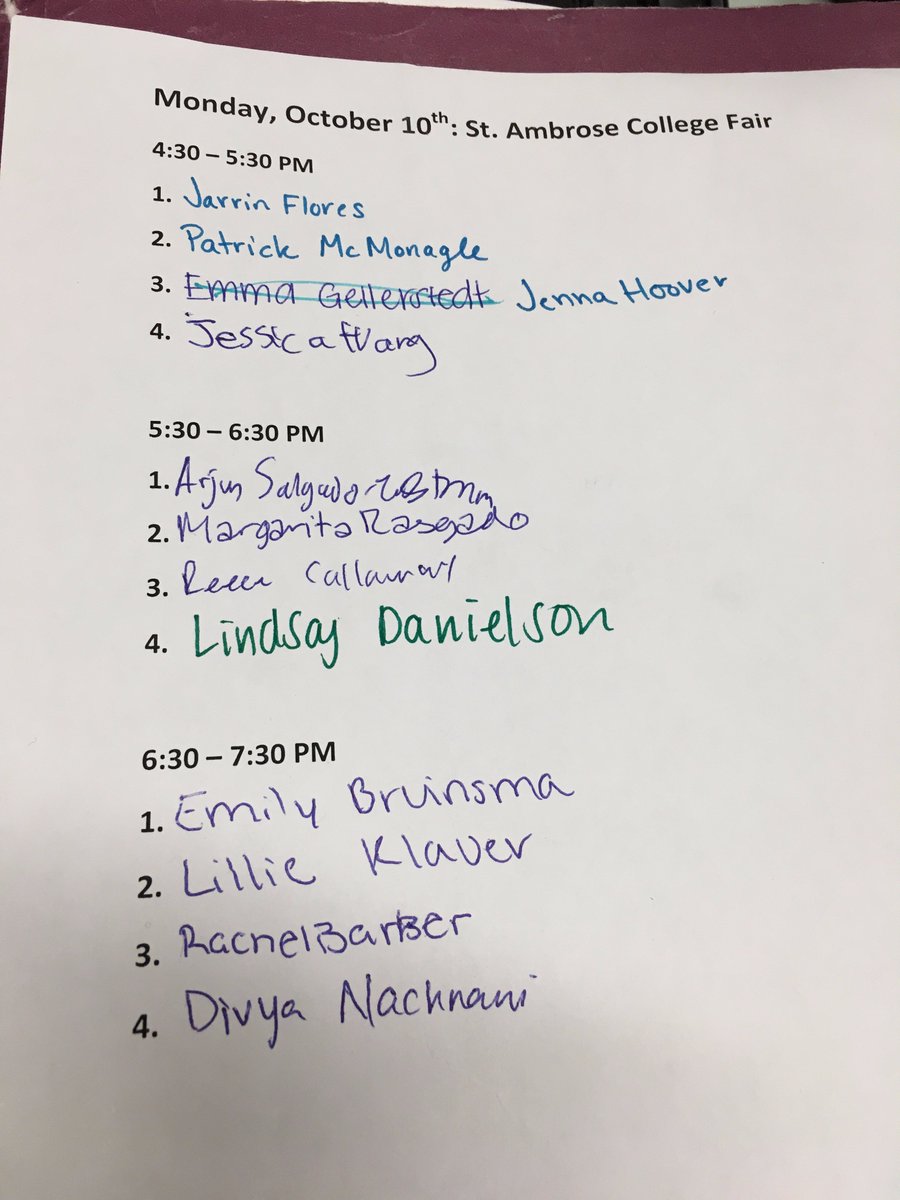 Monday, October 10th: St. Ambrose College Fair
4:30 – 5:30 PM
1. Jarrin Flores
2. Patrick McMonagle
3. Emma Gellerstedt Jenna Hoover
4. Jessica
5:30 – 6:30 PM
1. Arjun Salgado
2. Margarita Rasgado
3. Callaway
4. Lindsay Danielson
6:30 – 7:30 PM
1. Emily Bruinsma
2. Lillie Klaver
3. Rachel Barber
4. Divya Nachnani